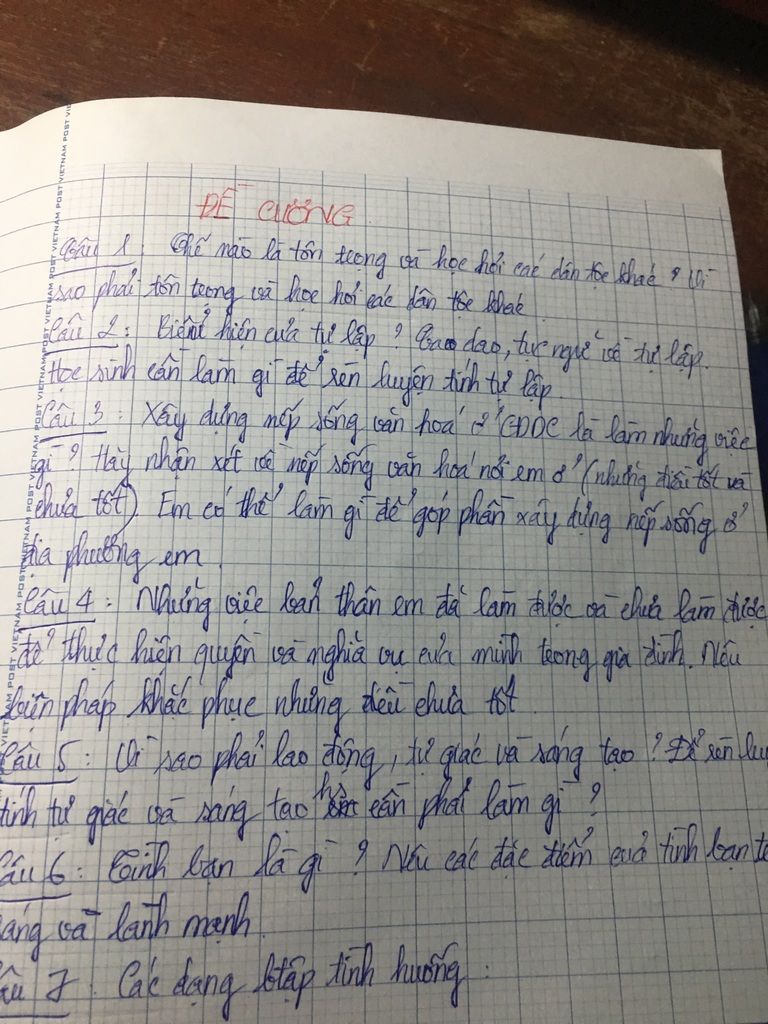 ĐỀ CƯƠNG
Câu 1: Thế nào là tôn trọng và học hỏi các dân tộc khác? Vì
sao phải tôn trọng và học hỏi các dân tộc khác
Câu 2: Biểu hiện của tự lập? Cao dao, tục ngữ về tự lập.
Học sinh cần làm gì để rèn luyện tính tự lập.
Câu 3: Xây dựng nếp sống văn hoá ở CĐDC là làm những việc
gì? Hãy nhận xét về nếp sống văn hoá nơi em ở (những điều tốt và
chưa tốt) Em có thể làm gì để góp phần xây dựng nếp sống ở
địa phương em.
Câu 4: Những việc bản thân em đã làm được và chưa làm được
để thực hiện quyền và nghĩa vụ của mình trong gia đình. Nêu
biện pháp khắc phục những điều chưa tốt.
Câu 5: Vì sao phải lao động, tự giác và sáng tạo? Để rèn luy
tính tự giác và sáng tạo hs cần phải làm gì?
Câu 6: Tình bạn là gì? Nêu các đặc điểm của tình bạn t
sáng và lành mạnh.
Câu 7: Các dạng btập tình huống:
VIETNAM POST VIETNAM POST VIETNAM POST VIETNAM POST VIETNAM POST